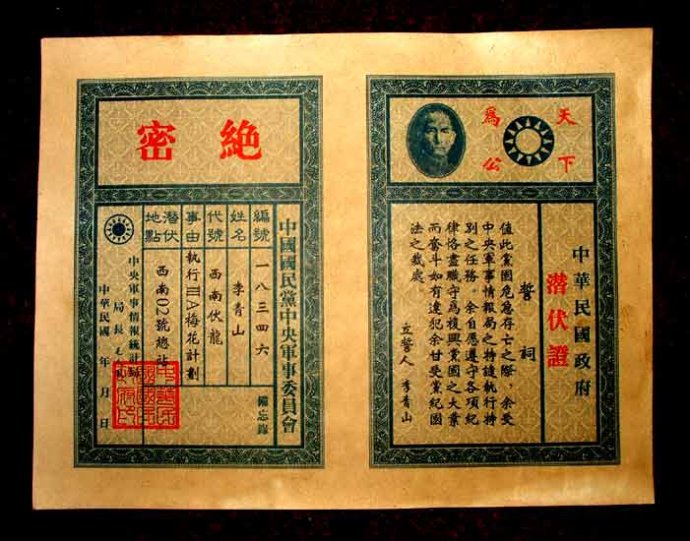 天下
為公
中華民國政府
潛伏證
誓詞
值此黨國危急存亡之際，余受
中央軍事情報局之特遣執行特
别之任務。余自愿遵守各項紀
律恪盡職守為復興黨國之大業
而奮斗如有違犯余甘受黨紀國
法之裁處
立誓人 李青山
絶密
中國國民黨中央軍事委員會
備忘錄
編號 一八三四六
姓名 李青山
代號 西南伏龍
事由 執行ⅢA梅花計劃
潛伏地點 西南02號總站
中央軍事情報統計局
局長
中華民國 年 月 日